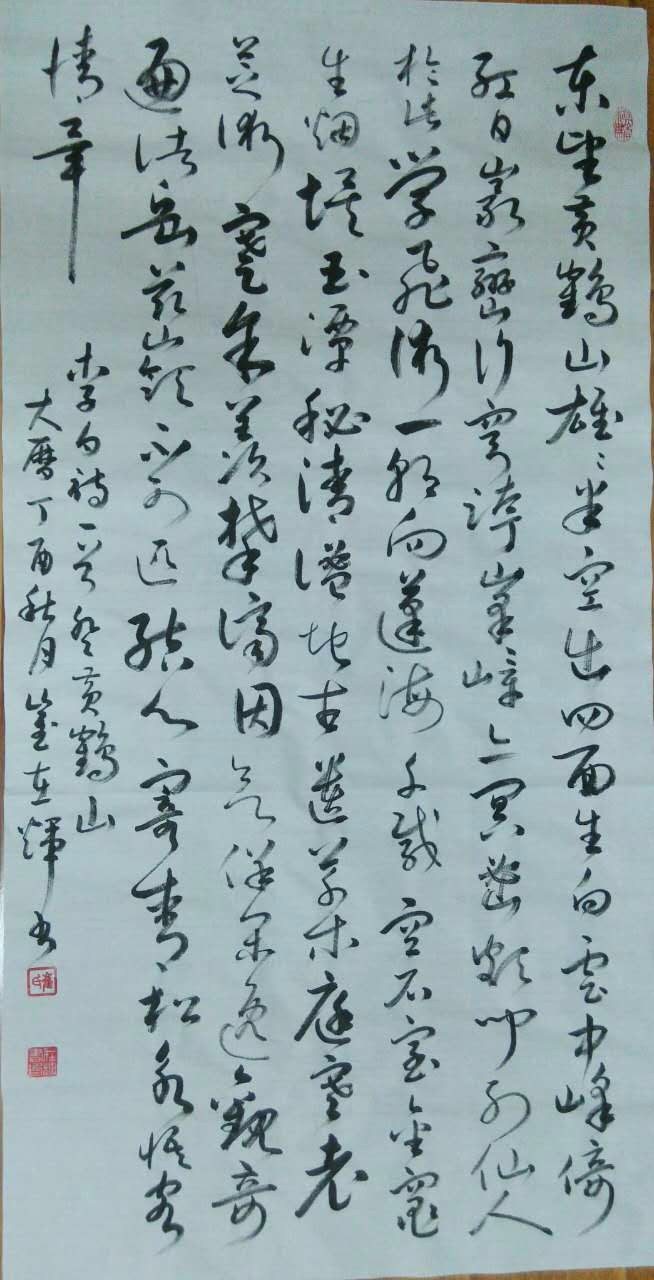 东望黄鹤山雄〻半空出四面生白雲中峰倚
红日巖巒行穹跨峯嶂亦冥密颇闻列仙人
於此学飛術一朝向蓬海千載空石室金竈
生烟埃玉潭秘清谧地古遺草木庭寒老
芝術蹇余羨攀躋因欲保閑逸觀奇
遍诸岳兹嶺不可匹结心寄青松永悟客
情畢
李白诗一首登黄鶴山
大曆丁酉秋月崔在輝书